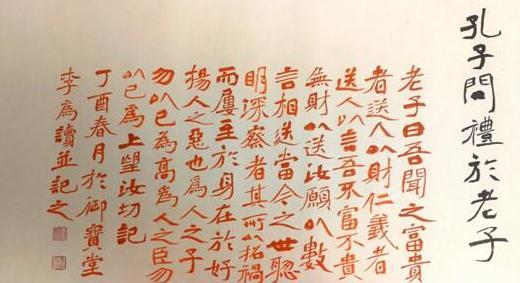 孔子問禮於老子
老子曰吾聞之富貴
者送人以財仁義者
送人以言吾不富不貴
無財以送汝願以數
言相送當今之世聰
明深察者其所以招禍
而屢至於身在於好
揚人之惡也為人之子
勿以己為高為人之臣勿
以己為上望汝切記
丁酉春月於御寶堂
李為讀並記之